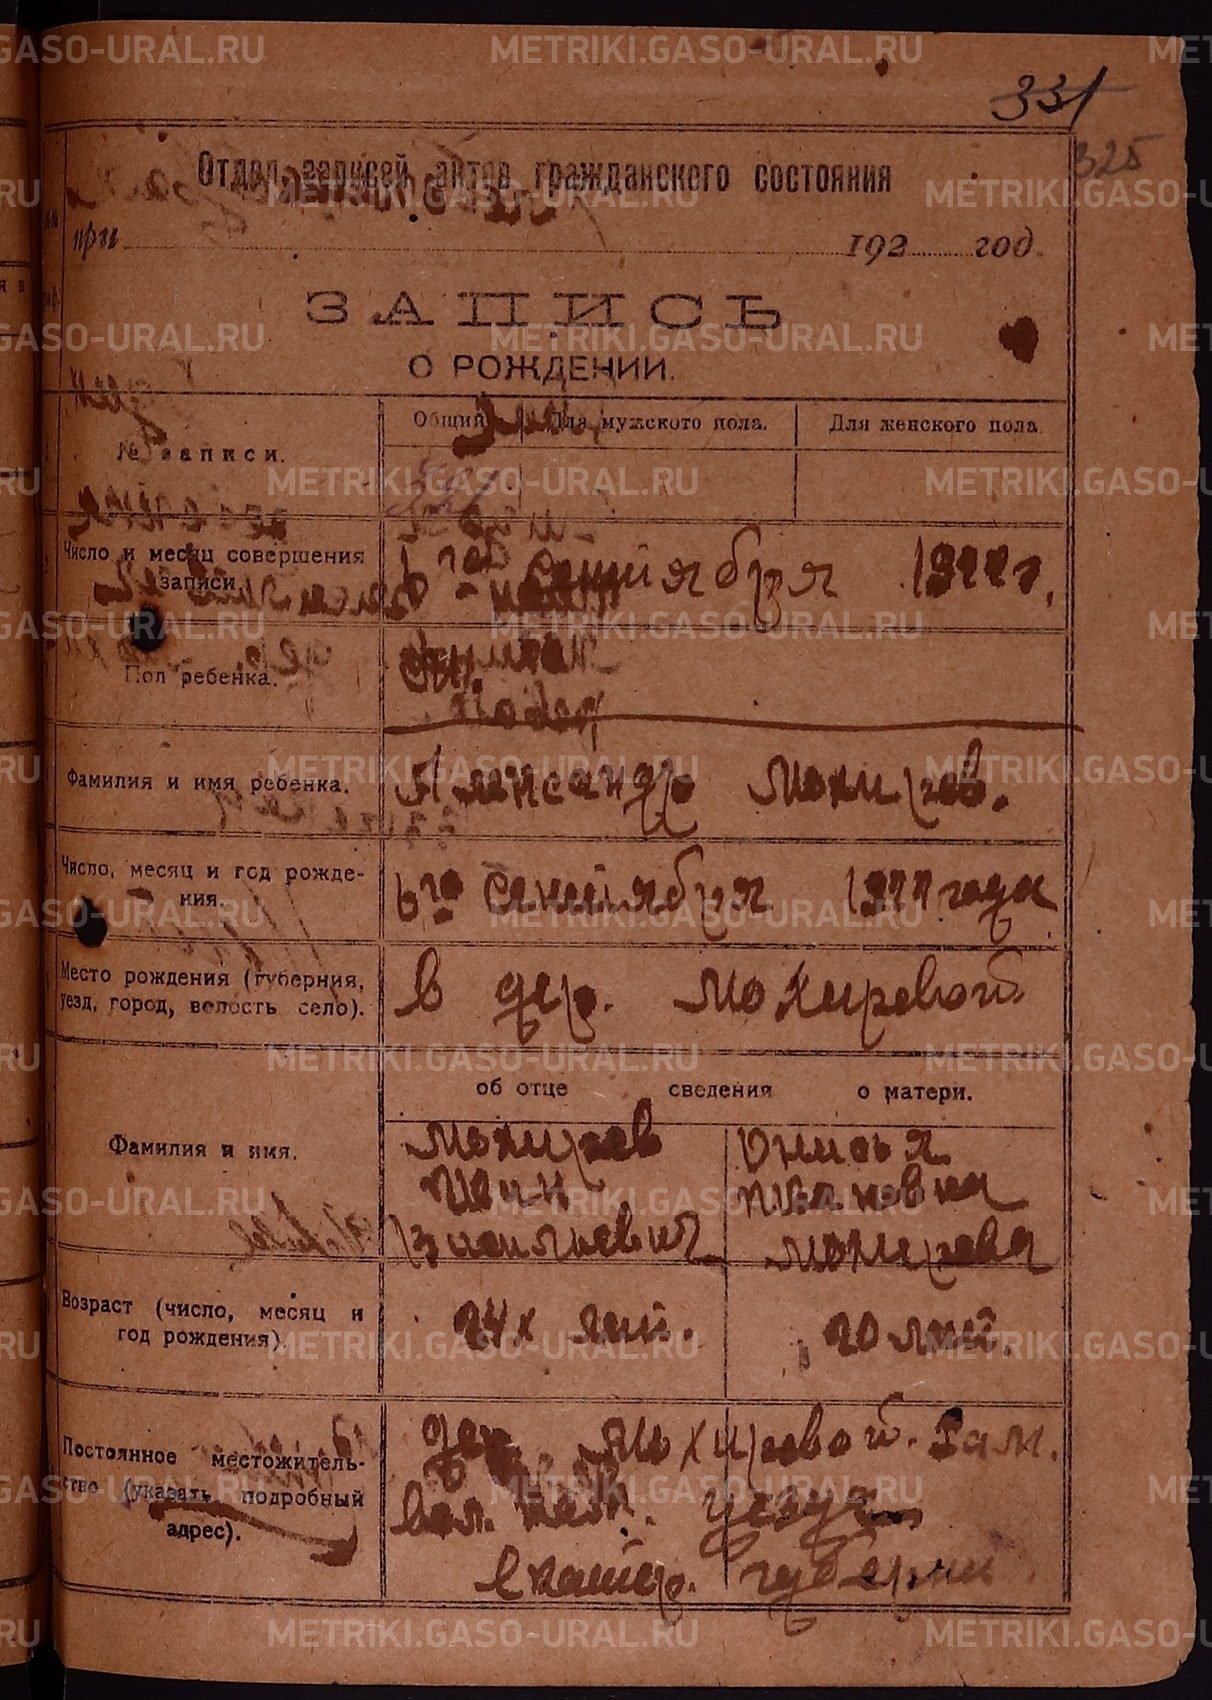 331
325
Отдел записей актов гражданского состояния
при 192 год.
ЗАПИСЬ
О РОЖДЕНИИ.
№ записи.
Общий
Для мужского пола.
Для женского пола
Число и месяц совершения
записи
6 го Сентября 1922 г.
Пол ребенка.
Фамилия и имя ребенка.
Александр Мохирев.
Число, месяц и год рожде-
ния.
6 го Сентября 1922 года
Место рождения (губерния,
уезд, город, волость село).
в дер. Мохиревой
об отце сведения о матери.
Фамилия и имя.
Мохирев
Иван
Васильевич
Онисья
Ивановна
Мохирева
Возраст (число, месяц и
год рождения).
24х лет.
20 лет.
Постоянное местожитель-
ство (указать подробный
адрес).
дер. Мохиревой
вол. уезда
Екатер. губернии
METRIKI.GASO-URAL.RU